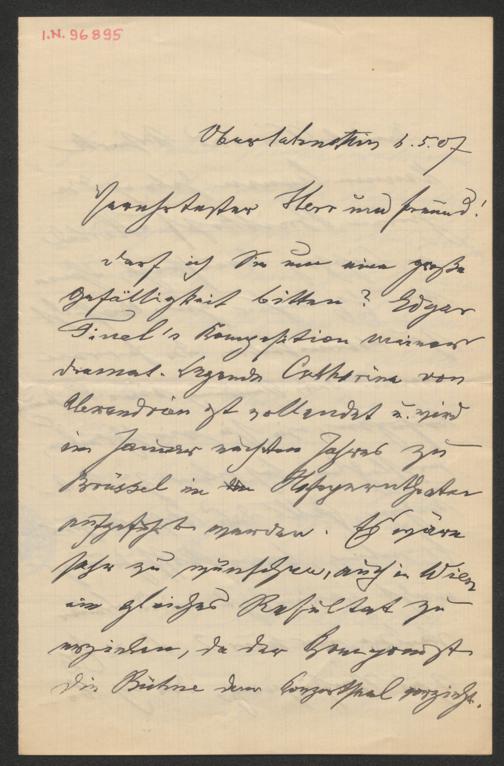 I.N. 96895
Oberlahnstein 6.5.07
Verehrtester Herr und Freund!
Darf ich Sie um eine große
Gefälligkeit bitten? Edgar
Tinel's Komposition meiner
dramat. Legende Catharina von
Alexandrien ist vollendet u. wird
im Januar nächsten Jahres zu
Brüssel im Hofoperntheater
aufgeführt werden. Es wäre
sehr zu wünschen, auch in Wien
ein gleiches Resultat zu
erzielen, da der Komponist
die Bühne dem Konzertsaal vorzieht.